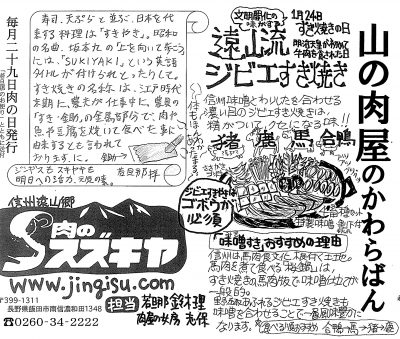 山の肉屋のかわらばん
1月24日
すき焼きの日
文明開化の味がするっ
明治天皇が初めて
牛肉を食された日
遠山流
ジビエすき焼き
信州味噌とわりしたを合わせる
濃い目のジビエすき焼きは、
精がついてクセになる味!!
猪 鹿 馬 合鴨
ジビエすき焼きは
ゴボウが
必須
「味噌すき」おすすめの理由
信州は馬肉食文化
馬肉を煮て食べる「桜鍋」は、
すき焼きの馬肉版で味噌仕立てが
一般的。
野趣あふれるジビエすき焼きも
味噌を合わせることで一層風味豊かに
なります。
合鴨→馬→猪→鹿
寿司、天ぷらと並ぶ、日本を代
表する料理は「すきやき」。昭和
の名曲、坂本九の「上を向いて歩こう」
には、「SUKIYAKI」という英語
タイトルが付けられたとか。
すき焼きの名称は、江戸時代
末期に、農夫が仕事中に、農具の
「すき・鋤」の金属部分で、肉や
魚や豆腐を焼いて食べた事に
由来すると言われて
おります。
鋤
ジンギスとスキヤキで
明日への活力、元気の源。
毎月二十九日肉の日発行
信州遠山郷
肉のスズキヤ
www.jingisu.com
〒399-1311
長野県飯田市南信濃和田1348
☎0260-34-2222
担当 若旦那 鈴木理
肉屋の女房 志保